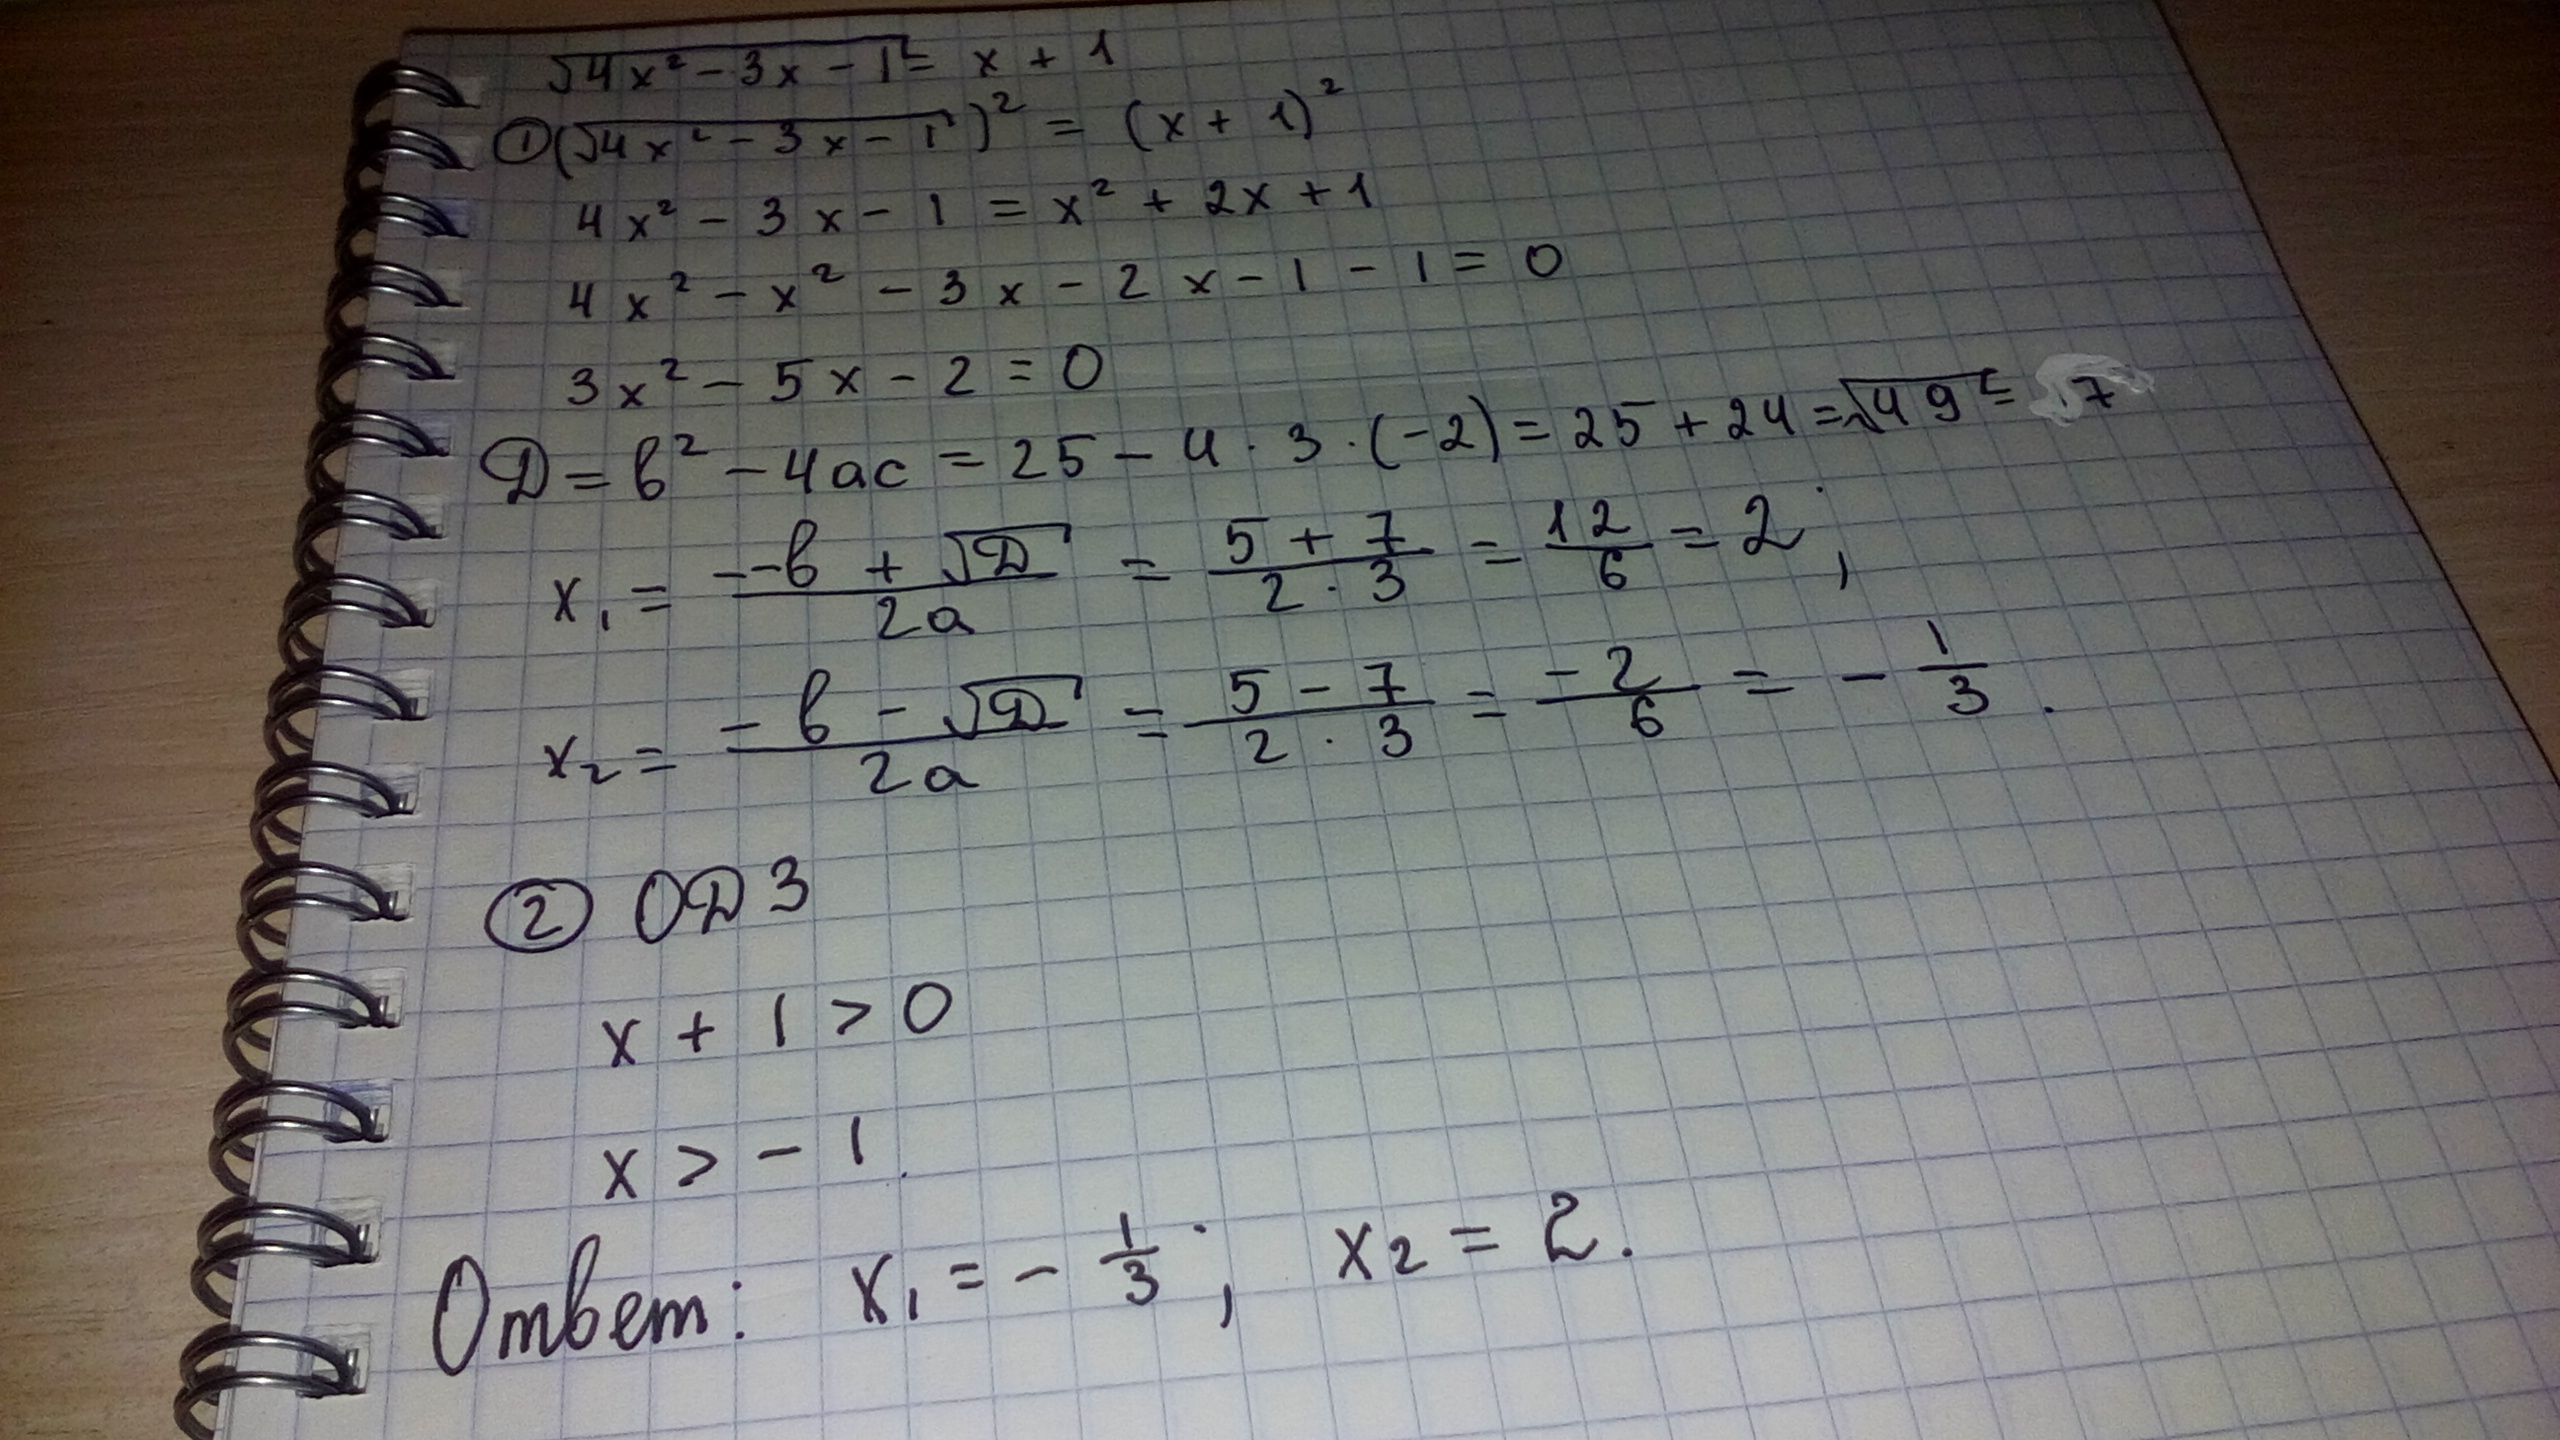 √4x² - 3x - 1 = x + 1
① (√4x² - 3x - 1)² = (x + 1)²
4x² - 3x - 1 = x² + 2x + 1
4x² - x² - 3x - 2x - 1 - 1 = 0
3x² - 5x - 2 = 0
D = b² - 4ac = 25 - 4 · 3 · (-2) = 25 + 24 = √49 = 7
x₁ = (-b + √D)/2a = (5 + 7)/(2 · 3) = 12/6 = 2;
x₂ = (-b - √D)/2a = (5 - 7)/(2 · 3) = -2/6 = -1/3.
② ОДЗ
x + 1 > 0
x > -1.
Ответ: x₁ = -1/3; x₂ = 2.